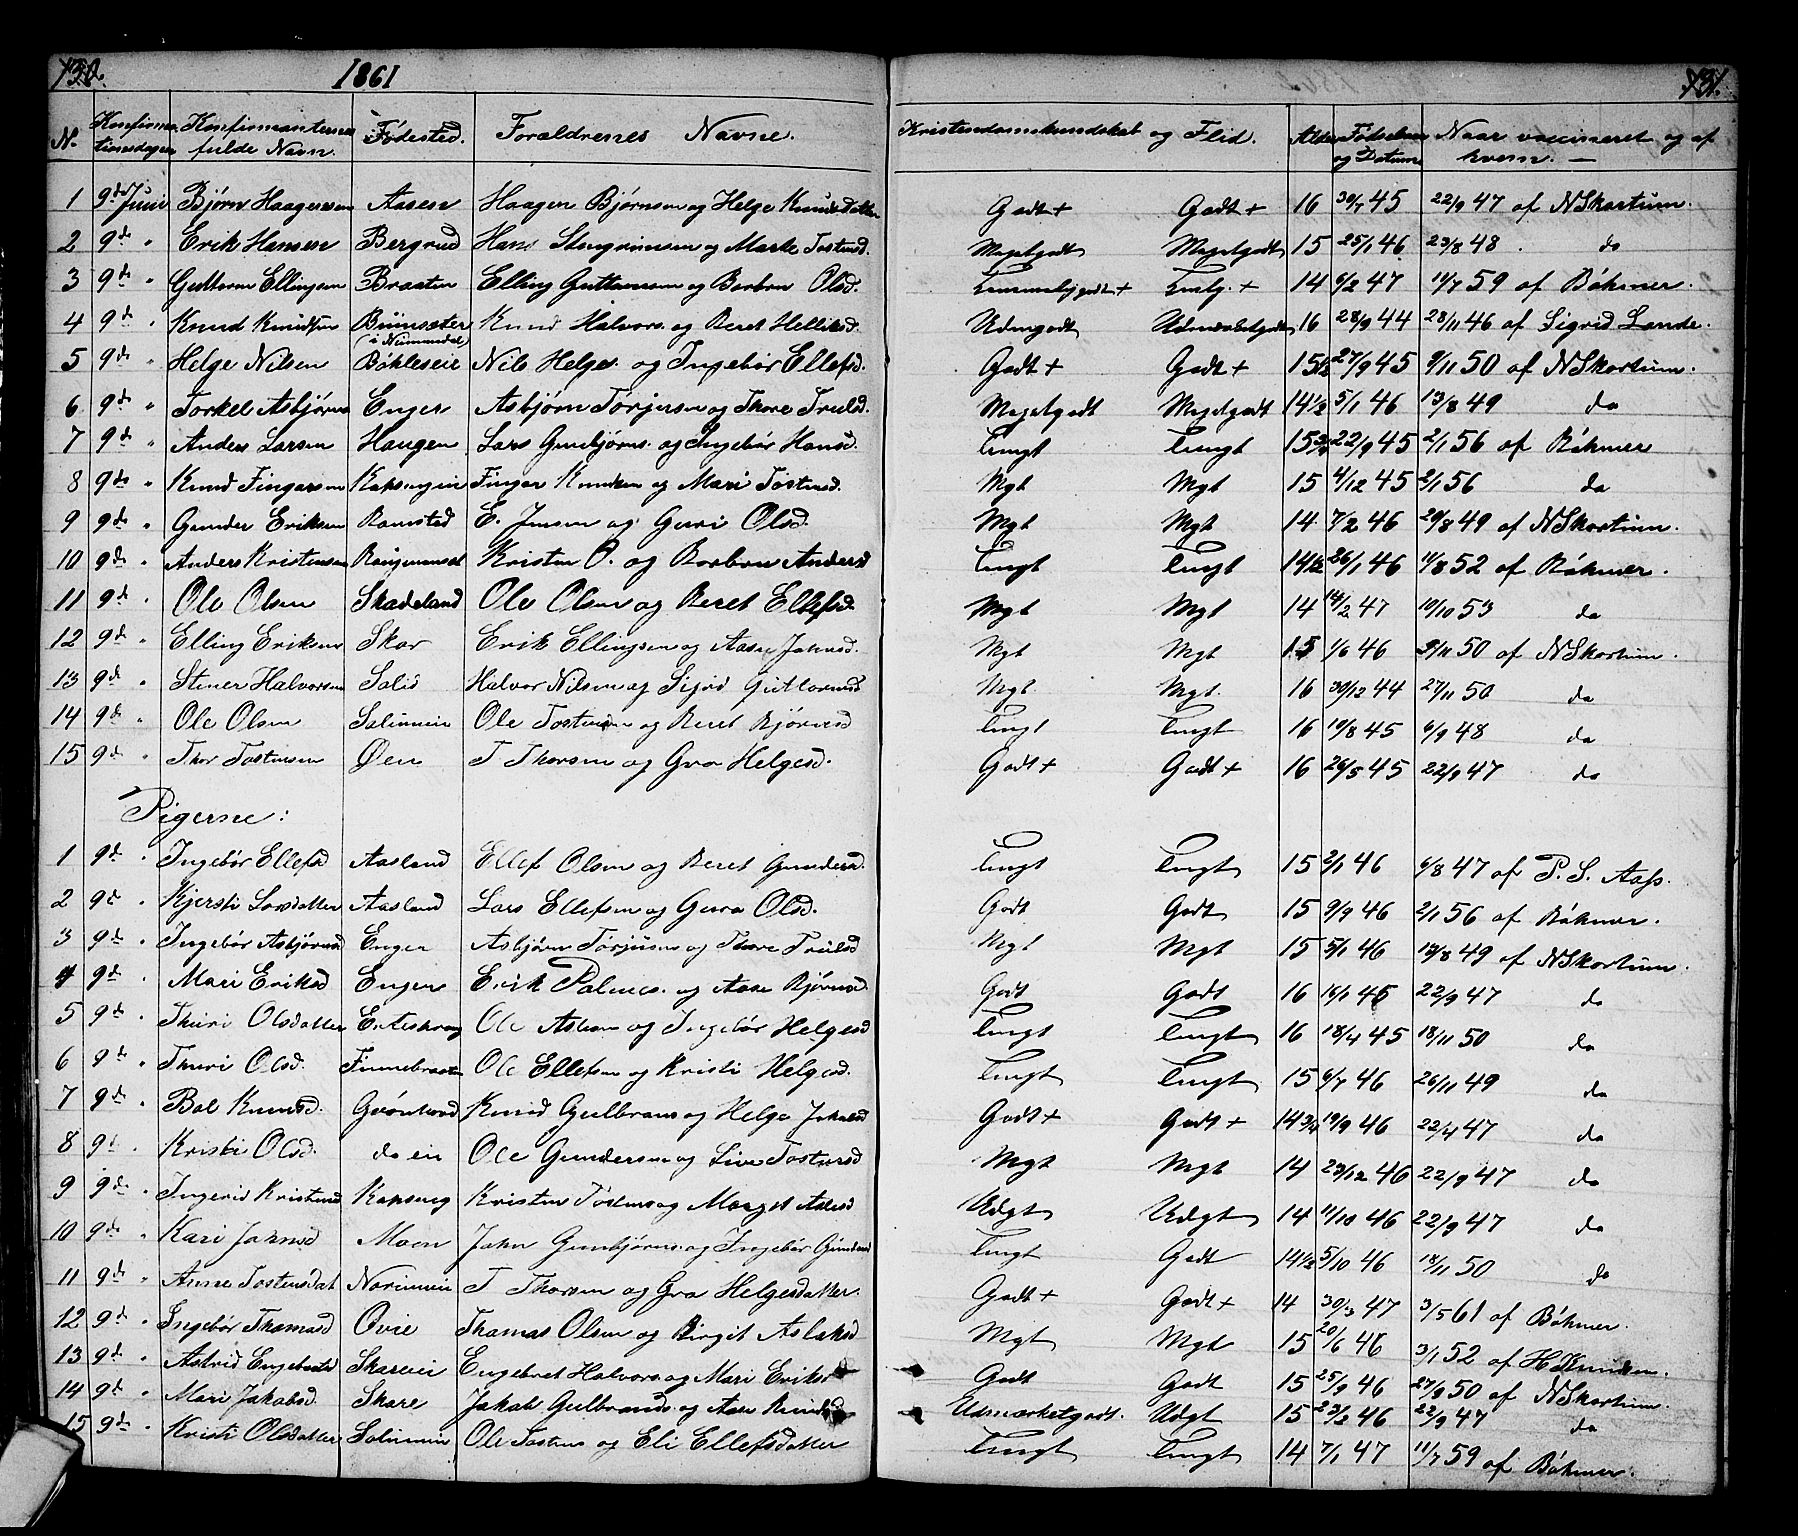 130. 1861 131.
N. Konfirmationsdagen Konfirmanternes fulde Navn. Fødested. Forældrenes Navne. Kristendomskundskab og Flid. Alder Fødselsaar og Datum Naar vaccineret og af hvem. —
1 9de Juni Bjørn Haagensen Aasen Haagen Bjørnsen og Helge Knudsdatter Godt+ Godt+ 16 30/7 45 22/9 47 af N Skortum.
2 9de " Erik Hansen Bergrud Hans Stengrimsen og Marte Tostensd. Megetgodt Megetgodt 15 25/1 46 23/8 48 . do
3 9de " Guttorm Ellingsen Braaten Elling Guttormsen og Barbro Olsd. + + 14 6/2 47 11/7 59 af Bøhmer.
4 9de " Knud Knudsen (i Nummedal) Knud Halvors. og Beret Helliksd. Udmgodt Udmærketgodt 16 28/9 44 23/11 46 af Sigrid Lande.
5 9de " Helge Nilsen Bøkleseie Nils Helges. og Ingebør Ellefsd. Godt+ Godt+ 15½ 27/9 45 9/11 50 af N Skortum.
6 9de " Torkel Asbjørns Enger Asbjørn Torjusen og Thore Trulsd. Megetgodt Megetgodt 14½ 5/1 46 13/8 49 do
7 9de " Anders Larsen Haugen Lars Gunbjørns. og Ingebør Hansd. Temgt Temgt 15¾ 22/9 45 2/1 56 af Bøhmer
8 9de " Knud Fingarsen Fingar Knudsen og Mari Tostensd. Mgt Mgt 15 4/12 45 2/1 56 do
9 9de " Gunder Eriksen Ramstad E. Jensen og Guri Olsd. Mgt Mgt 14. 7/2 46 29/8 49 af N Skortum.
10 9de " Anders Kristensen Kristen O. og Barbro Andersd Temgt Temgt 14½ 26/1 46 11/8 52 af Bøhmer.
11 9de " Ole Olsen Skadeland Ole Olsen og Beret Ellefsd. Mgt Mgt 14 14/2 47 10/10 53 do
12 9de " Elling Eriksen Skar Erik Ellingsen og Aase Johnsd. Mgt Mgt 15 1/6 46 9/11 50 af N Skortum.
13 9de " Stener Halvorsen Solid Halvor Nilsen og Sigrid Guttormsd Mgt. Mgt. 16 30/12 44 27/11 50 do
14 9de " Ole Olsen Soliimeie Ole Tostensen og Beret Bjørnsd Temgt Temgt 16 10/8 45 6/9 48 do
15 9de " Thor Tostensen Øen T Thorsen og Gro Helgesd. Godt+ Godt+ 16 26/5 45 22/9 47 do
Pigerne:
1 9de " Ingebør Ellefsd Aasland Ellef Olsen og Beret Gundersd. Temgt Temgt 15 2/1 46 6/8 47 af P. S. Aass.
2 9de " Kjersti Larsdatter Aasland Lars Ellefsen og Guro Olsd. Godt Godt 15 9/9 46 2/1 56 af Bøhmer.
3 9de " Ingebør Asbjørnsd Enger Asbjørn Torjusen og Thore Trulsd Mgt Mgt 15 5/1 46 13/8 49 af N Skortum.
4 9de " Mari Eriksd Enger Erik Palmes. og Aase Bjørnsd. Godt Godt 16 16/1 45 22/9 47 do
5 9de " Thuri Olsdatter Ole Aslesen og Ingebør Helgesd Temgt Temgt 16 18/4 45 18/11 50 do
6 9de " Thuri Olsd. Finnebraaten Ole Ellefsen og Kristi Helgesd. Temgt Temgt 15 6/7 46 26/11 49 do
7 9de " Bol Knudsd. Knud Gulbrans og Helga Jakobsd Godt+ Godt+ 14¾ 19/9 46 22/4 47 do
8 9de " Kristi Olsd. do eie Ole Gundersen og Live Tostensd Mgt Mgt 14 23/12 46 22/9 47 do
9 9de " Ingerid Kristensd Kristen Tostens og Margit Aslesd Udgt Udgt 14 11/10 46 22/9 47 do
10 9de " Kari Johnsd Moen John Gunbjørns. og Ingebør Gundersd Temgt Godt 14½ 5/10 46 18/11 50 do
11 9de " Anne Tostensdat Norimeie T Thorsen og Gro Helgesdatter. Godt+ Godt+ 14 30/3 47 3/5 61 af Bøhmer.
12 9de " Ingebør Thomasd Ovie Thomas Olsen og Birgit Aslaksd Mgt Mgt 15 20/6 46 3/1 52 af H Knudsen.
13 9de " Astrid Engebretsd Skareeie Engebret Halvors. og Mari Eriksd Godt Godt 15 25/9 46 27/9 50 af N Skortum.
14 9de " Mari Jakobsd. Skare Jakob Gulbrands. og Aase Knudsd Udmærketgodt. Udgt 15 23/2 46 22/9 47 do
15 9de " Kristi Olsdatter Soliimeie Ole Tostens og Eli Ellefsdatter Temgt Temgt 14 7/1 47 11/7 59 af Bøhmer.